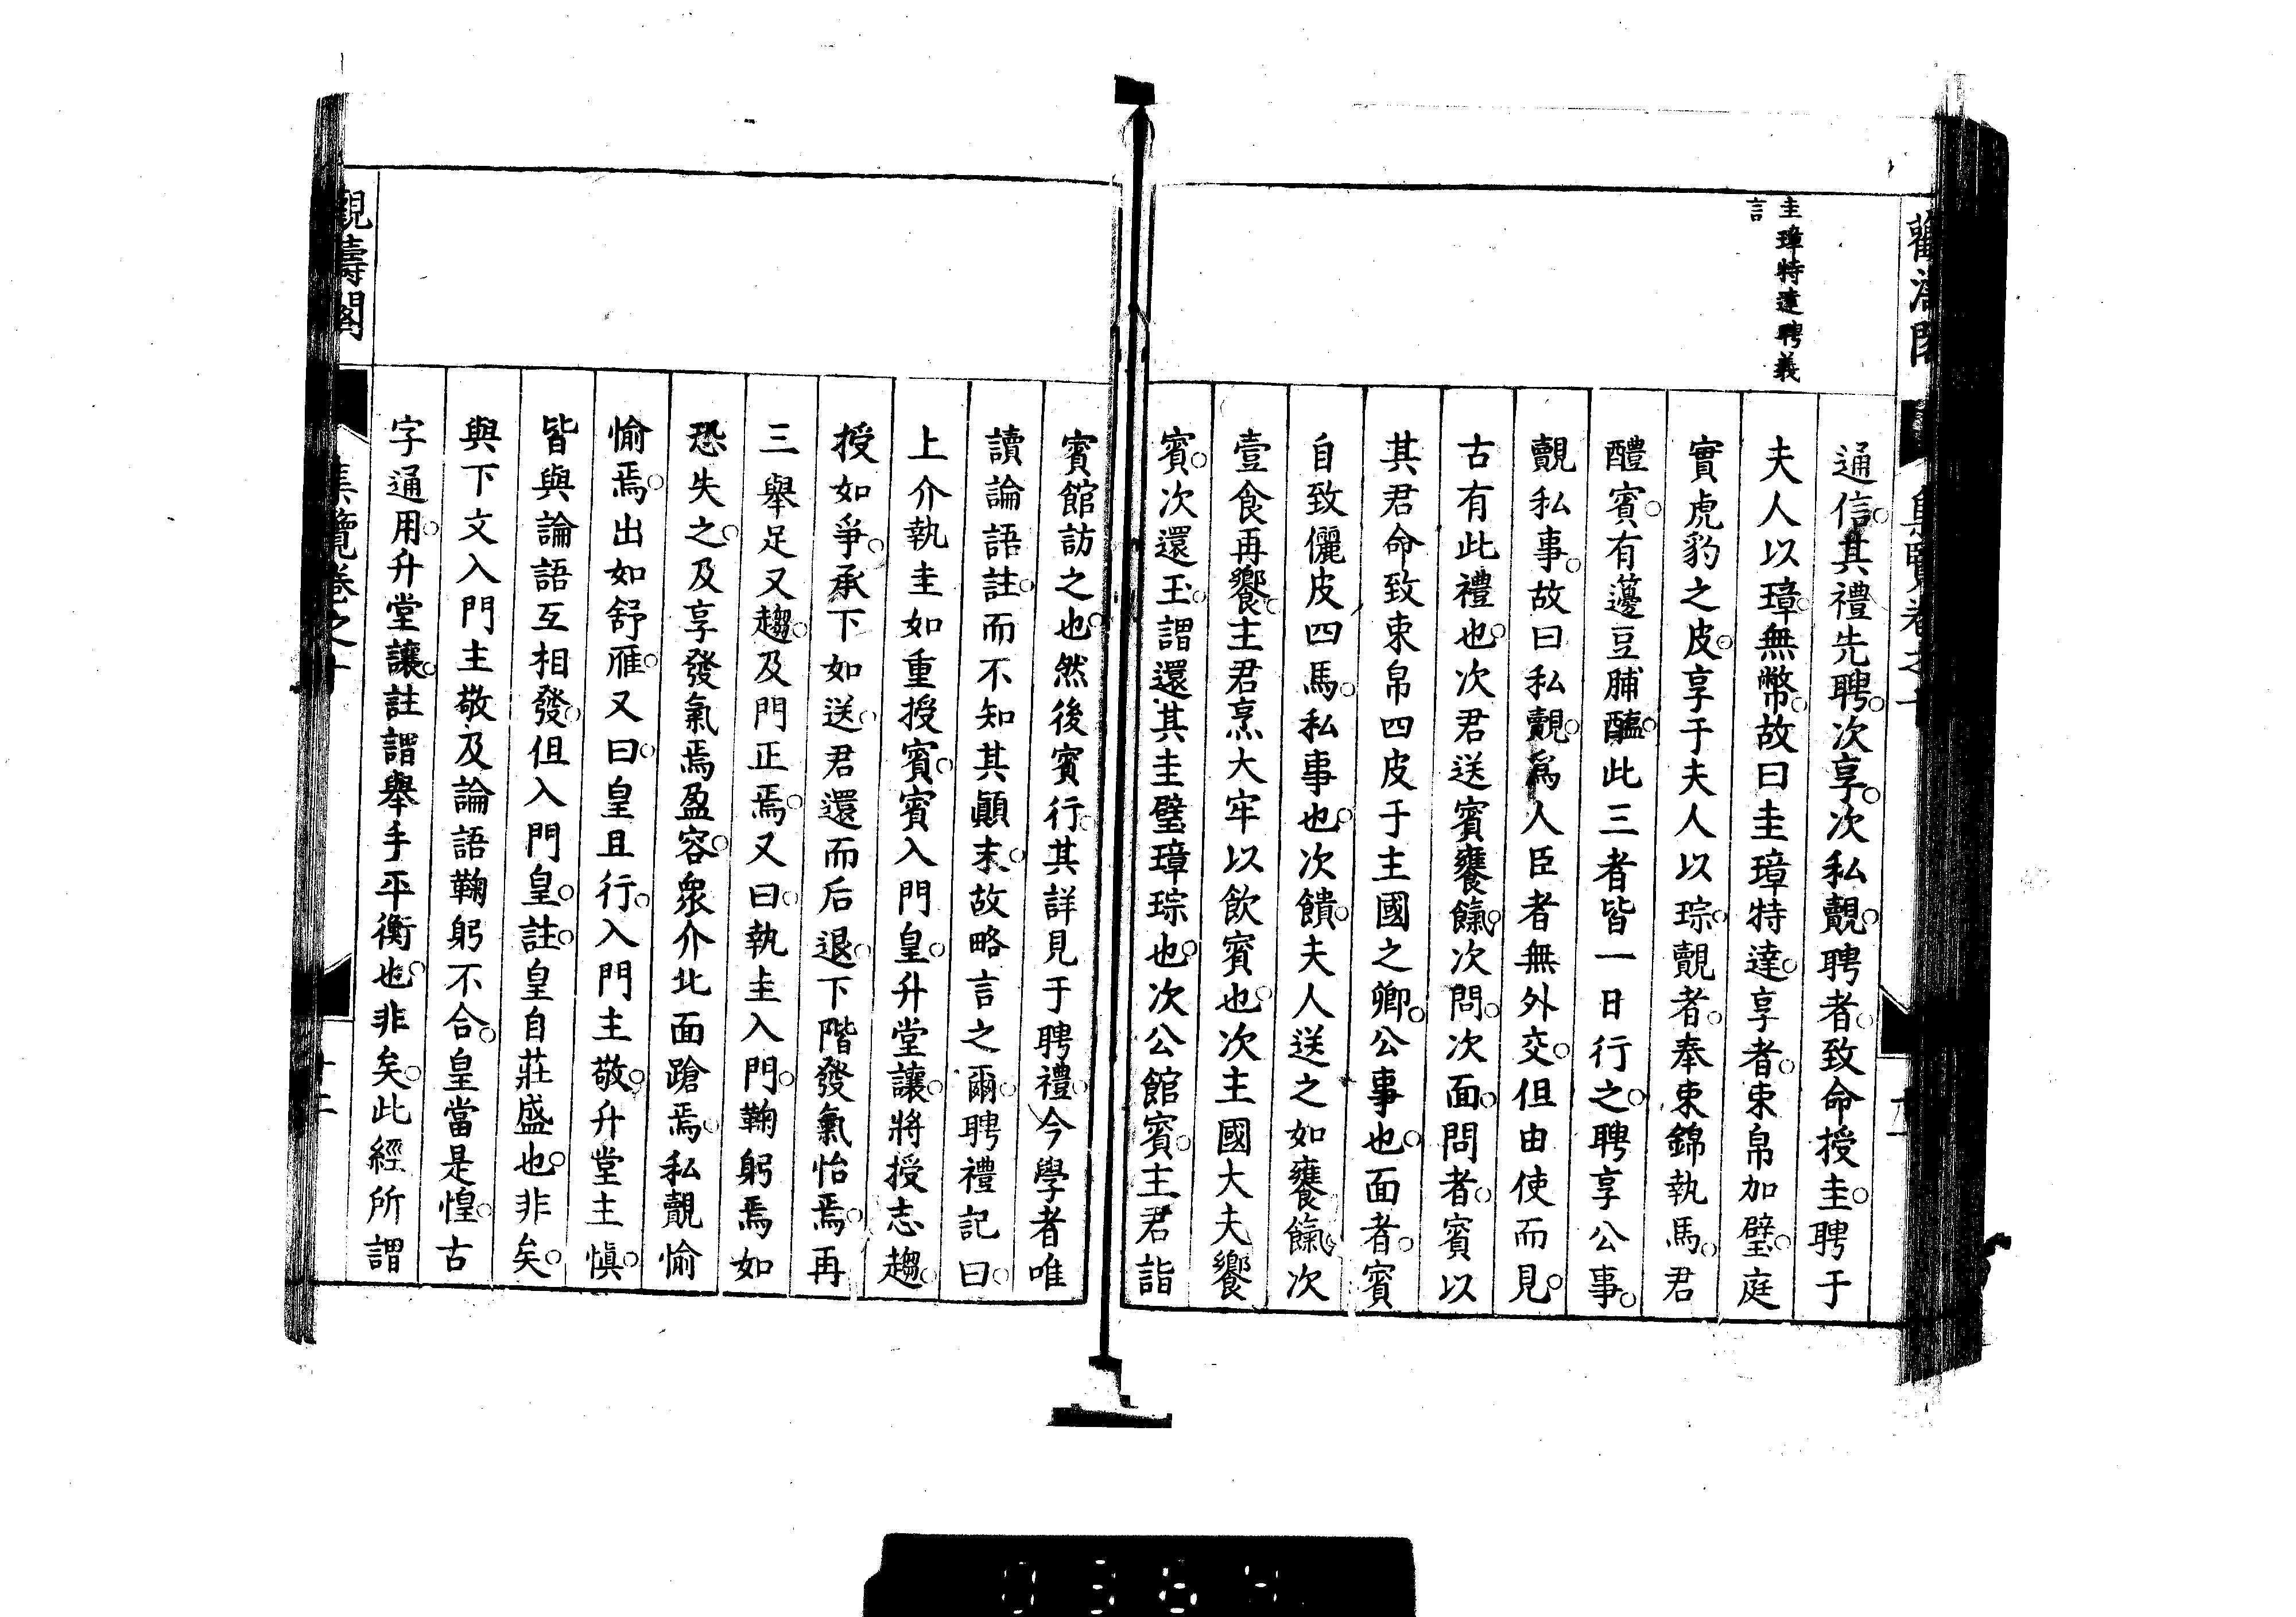 圭璋特達聘義
言
通信其禮先聘次享次私覿聘者致命授圭聘于
夫人以璋無幣故曰圭璋特達享者束帛加璧庭
實虎豹之皮享于夫人以琮覿者奉束錦執馬君
醴賓有籩豆脯醢此三者皆一日行之聘享公事
覿私事故曰私覿爲人臣者無外交但由使而見
古有此禮也次君送賓饔餼次問次面問者賓以
其君命致束帛四皮于主國之卿公事也面者賓
自致儷皮四馬私事也次饋夫人送之如饔餼次
壹食再饗主君烹大牢以飲賓也次主國大夫饗
賓次還玉謂還其圭璧璋琮也次公館賓主君詣
賓館訪之也然後賓行其詳見于聘禮今學者唯
讀論語註而不知其顚末故略言之爾聘禮記曰
上介執圭如重授賓賓入門皇升堂讓將授志趨
授如爭承下如送君還而后退下階發氣怡焉再
三舉足又趨及門正焉又曰執圭入門鞠躬焉如
恐失之及享發氣焉盈容衆介北面蹌焉私覿愉
愉焉出如舒雁又曰皇且行入門主敬升堂主愼
皆與論語互相發但入門皇註皇自莊盛也非矣
與下文入門主敬及論語鞠躬不合皇當是惶古
字通用升堂讓註謂舉手平衡也非矣此經所謂
觀濤閣
集覽卷之十
十二